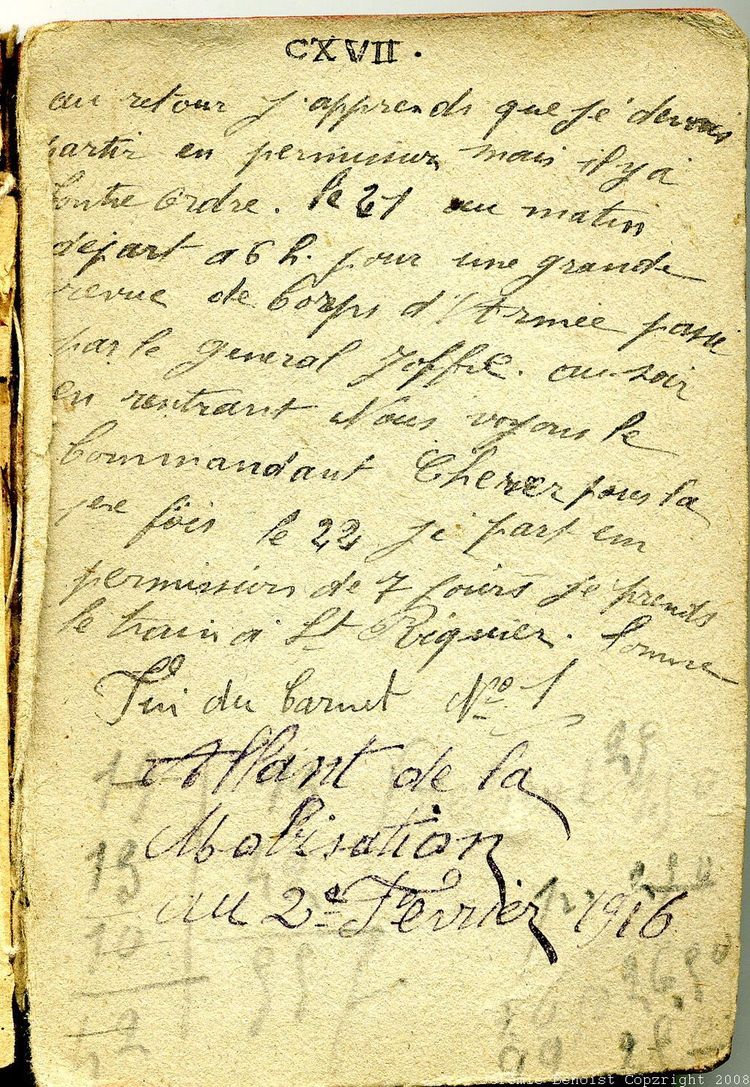 CXVII.
au retour j'apprends que je devais
partir en permission mais il y a
Contre Ordre. le 21 au matin
départ a 6 h. pour une grande
revue de Corps d'Armée passé
par le general Joffre. au soir
en rentrant Nous voyons le
Commandant Cherer pour la
1ere fois le 22 je part en
permission de 7 jours je prends
le train a St Riquier. Somme
Fin du Carnet No 1
Allant de la
Mobisation
au 2e Fevrier 1916
Benoist Copyright 2008